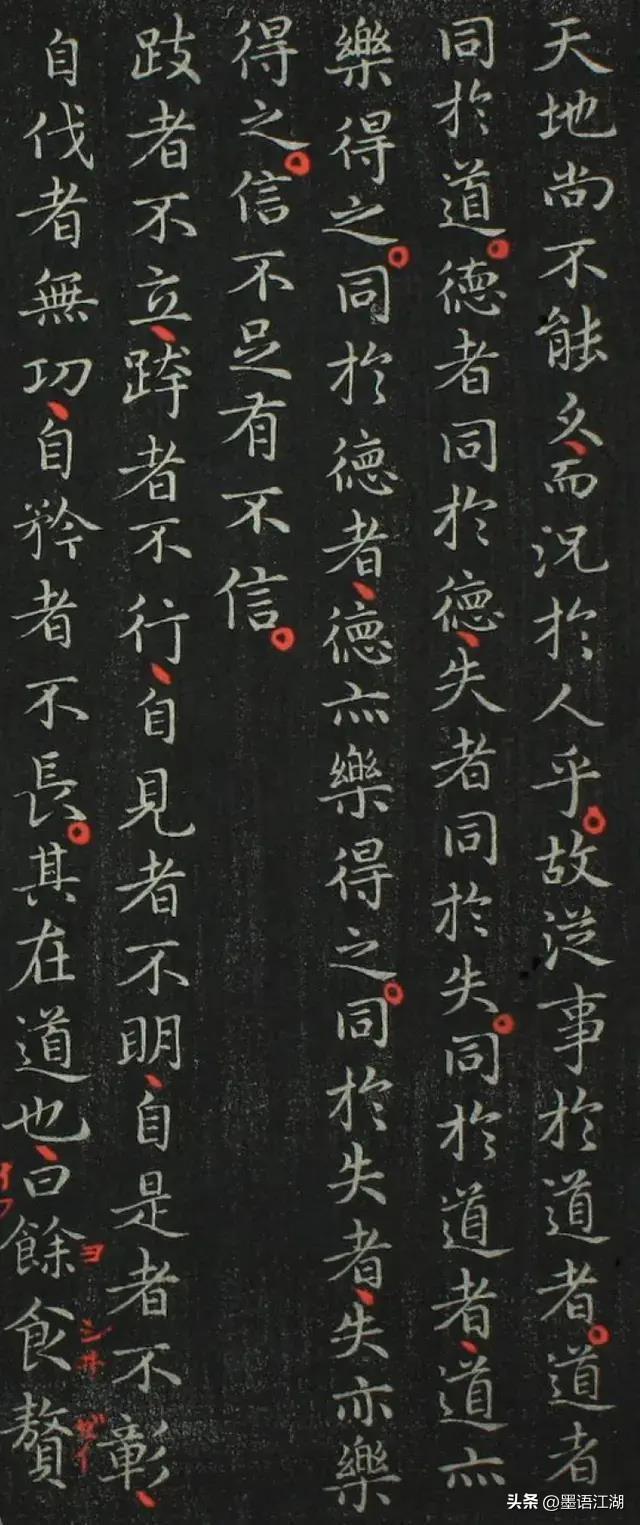 天地尚不能久、而況於人乎。故從事於道者。道者
同於道。德者同於德、失者同於失。同於道者、道亦
樂得之。同於德者、德亦樂得之。同於失者、失亦樂
得之。信不足有不信。
跂者不立、跨者不行、自見者不明、自是者不彰、
自伐者無功、自矜者不長。其在道也、曰餘食贅
イフ
ヨ
シキ
ゼイ
头条 @墨语江湖